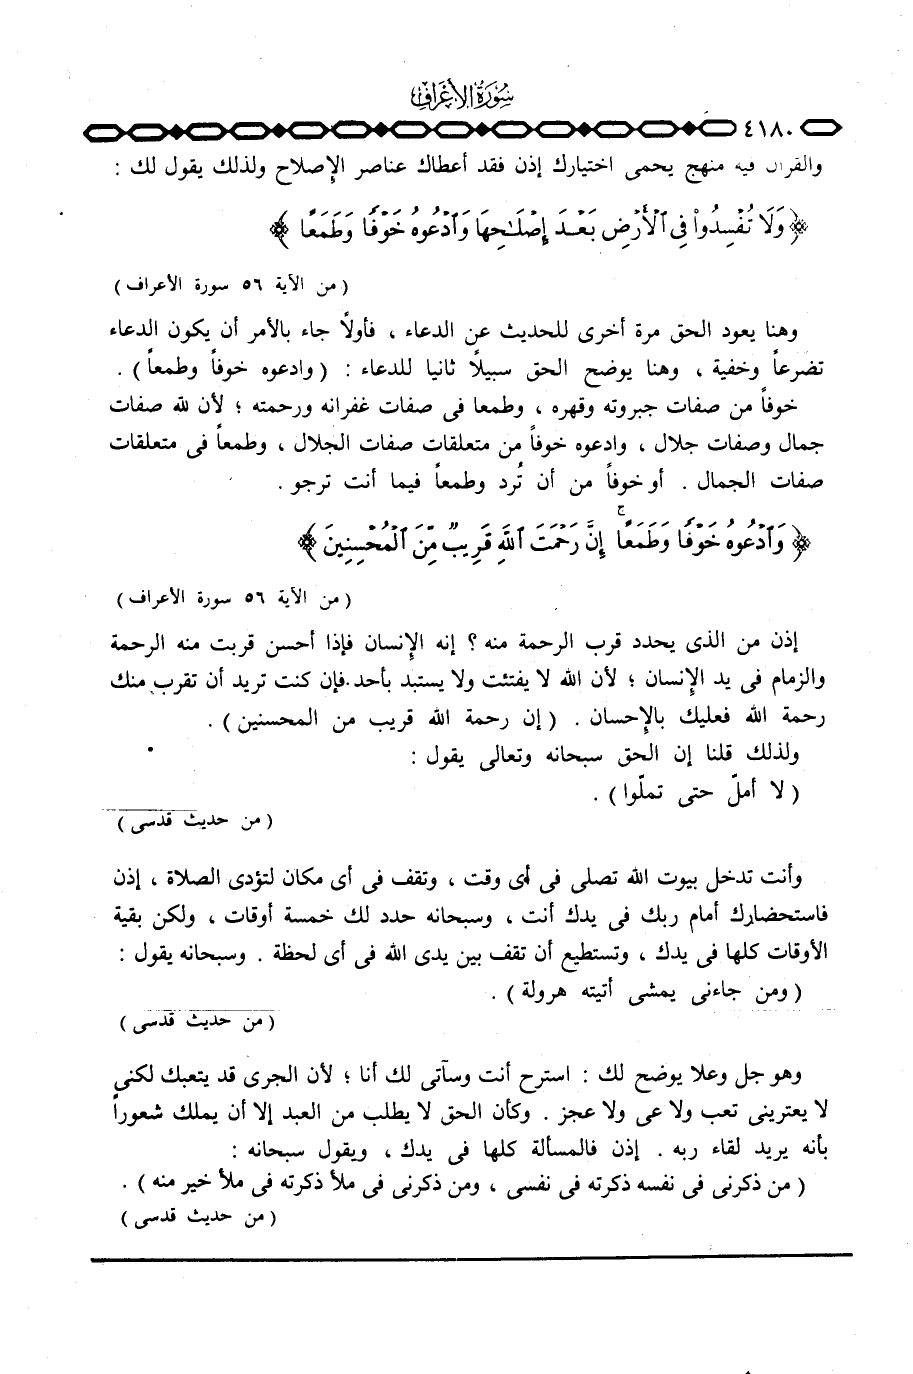 سورة الأعراف
٤١٨٠
والقرآن فيه منهج يحمى اختيارك إذن فقد أعطاك عناصر الإصلاح ولذلك يقول لك :
﴿ وَلَا تُفْسِدُوا۟ فِى ٱلْأَرْضِ بَعْدَ إِصْلَٰحِهَا وَٱدْعُوهُ خَوْفًا وَطَمَعًا ﴾
( من الآية ٥٦ سورة الأعراف )
وهنا يعود الحق مرة أخرى للحديث عن الدعاء ، فأولاً جاء بالأمر أن يكون الدعاء
تضرعاً وخفية ، وهنا يوضح الحق سبيلاً ثانيا للدعاء : ( وادعوه خوفاً وطمعاً ) .
خوفاً من صفات جبروته وقهره ، وطمعا فى صفات غفرانه ورحمته ؛ لأن لله صفات
جمال وصفات جلال ، وادعوه خوفاً من متعلقات صفات الجلال ، وطمعاً فى متعلقات
صفات الجمال . أو خوفاً من أن تُرد وطمعاً فيما أنت ترجو .
﴿ وَٱدْعُوهُ خَوْفًا وَطَمَعًا ۚ إِنَّ رَحْمَتَ ٱللَّهِ قَرِيبٌ مِّنَ ٱلْمُحْسِنِينَ ﴾
( من الآية ٥٦ سورة الأعراف )
إذن من الذى يحدد قرب الرحمة منه ؟ إنه الإنسان فإذا أحسن قربت منه الرحمة
والزمام فى يد الإنسان ؛ لأن الله لا يفتئت ولا يستبد بأحد . فإن كنت تريد أن تقرب منك
رحمة الله فعليك بالإحسان . ( إن رحمة الله قريب من المحسنين ) .
ولذلك قلنا إن الحق سبحانه وتعالى يقول :
( لا أملّ حتى تملّوا ) .
( من حديث قدسى )
وأنت تدخل بيوت الله تصلى فى أى وقت ، وتقف فى أى مكان لتؤدى الصلاة ، إذن
فاستحضارك أمام ربك فى يدك أنت ، وسبحانه حدد لك خمسة أوقات ، ولكن بقية
الأوقات كلها فى يدك ، وتستطيع أن تقف بين يدى الله فى أى لحظة . وسبحانه يقول :
( ومن جاءنى يمشى أتيته هرولة ) .
( من حديث قدسى )
وهو جل وعلا يوضح لك : استرح أنت وسآتى لك أنا ؛ لأن الجرى قد يتعبك لكنى
لا يعترينى تعب ولا عى ولا عجز . وكأن الحق لا يطلب من العبد إلا أن يملك شعوراً
بأنه يريد لقاء ربه . إذن فالمسألة كلها فى يدك ، ويقول سبحانه :
( من ذكرنى فى نفسه ذكرته فى نفسى ، ومن ذكرنى فى ملأ ذكرته فى ملأ خير منه ) .
( من حديث قدسى )